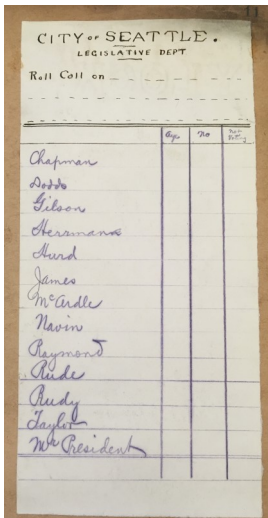 CITY OF SEATTLE.
LEGISLATIVE DEPT
Roll Call on
Aye No Not Voting
Chapman
Dodds
Gilson
Herrmans
Hurd
James
McArdle
Navin
Raymond
Rude
Rudy
Taylor
Mr President